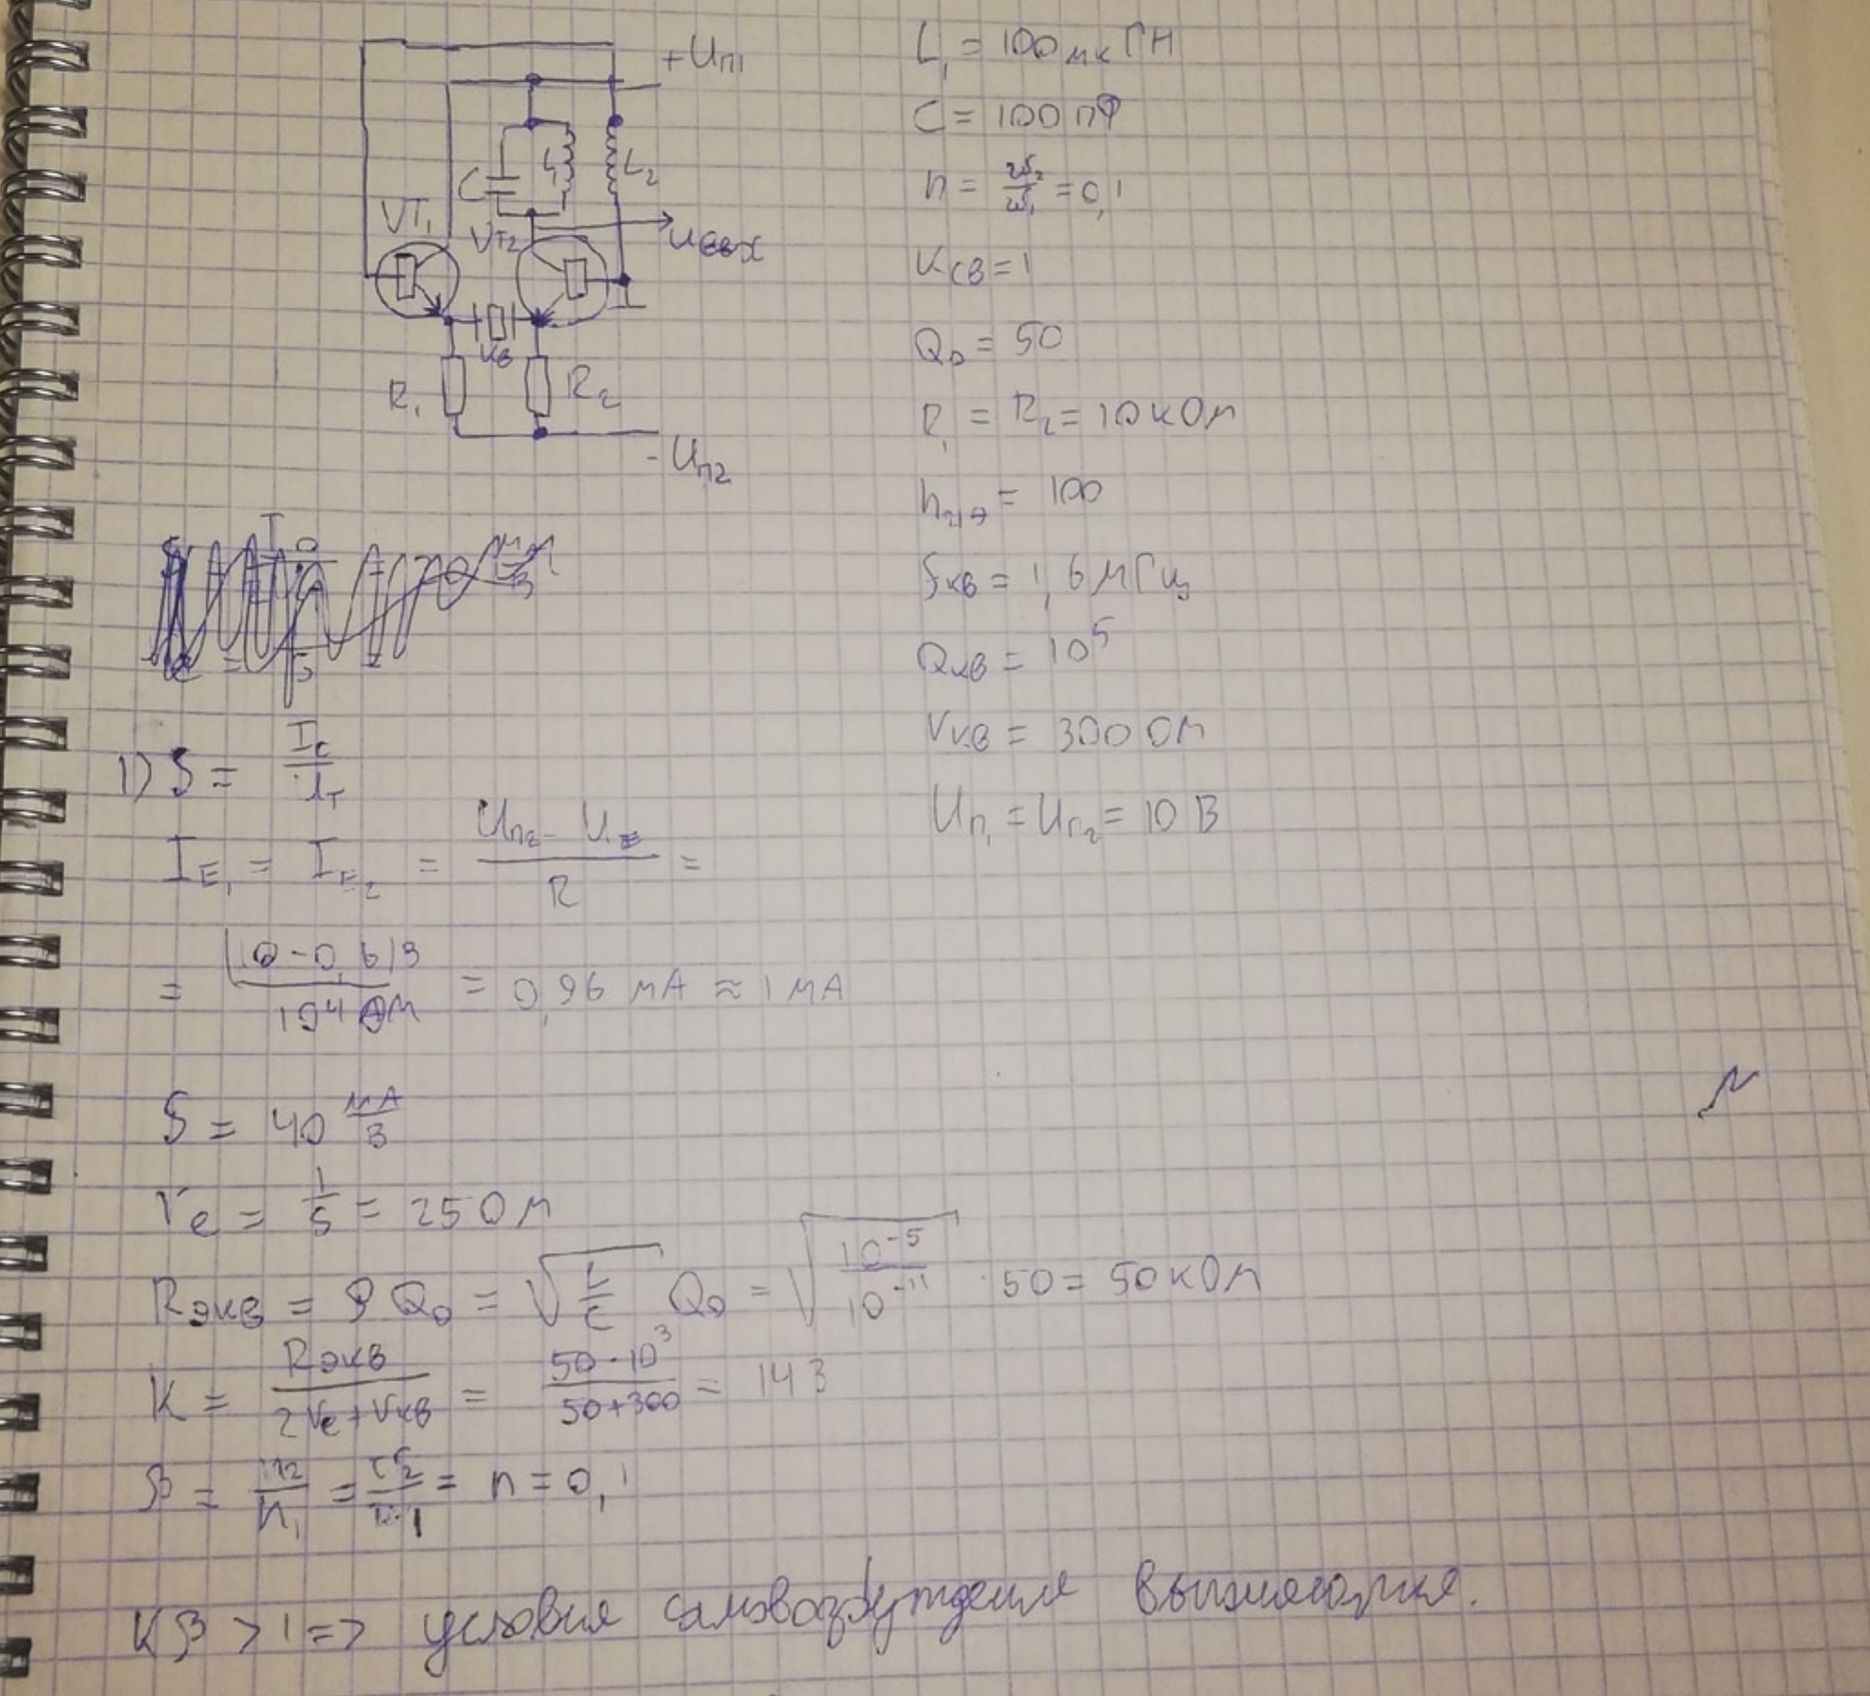 +Uп1
C
L1
L2
VT1
VT2
Uвых
Кв
R1
R2
-Uп2
L1 = 100 мкГн
C = 100 пФ
n = w2/w1 = 0,1
Kсв = 1
Q0 = 50
R1 = R2 = 10 кОм
h21э = 100
fкв = 1,6 МГц
Qкв = 10^5
rкв = 300 Ом
Uп1 = Uп2 = 10 В
1) S = Ic/φт
IE1 = IE2 = (Uп2 - U)/R =
= (10-0,6)В/10^4 Ом = 0,96 мА ≈ 1 мА
S = 40 мА/В
re = 1/S = 25 Ом
Rэкв = ρQ0 = √(L/C) Q0 = √(10^-5/10^-11) · 50 = 50 кОм
K = Rэкв/(2re + rкв) = 50·10^3/(50+300) = 143
β = n2/n1 = w2/w1 = n = 0,1
Kβ > 1 => условие самовозбуждения выполняется.